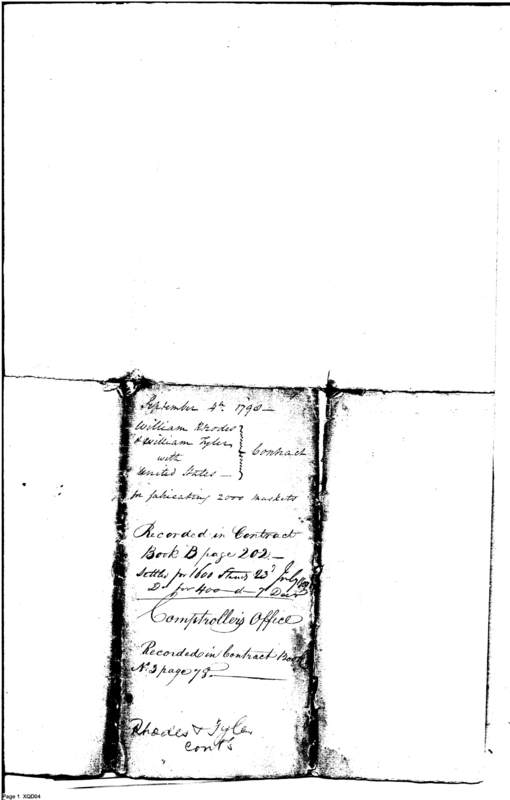 September 4th 1798—
William Rhodes
& William Tyler
with
United States—
Contract
for fabricating 2000 muskets
Recorded in Contract
Book B page 202.—
Settled for 1600 Stands 23d July
Do for 400 do 7 Decr
Comptroller's Office
Recorded in Contract Book
No. 2 page 78.
Rhodes & Tyler
cont's
Page 1 XQD04